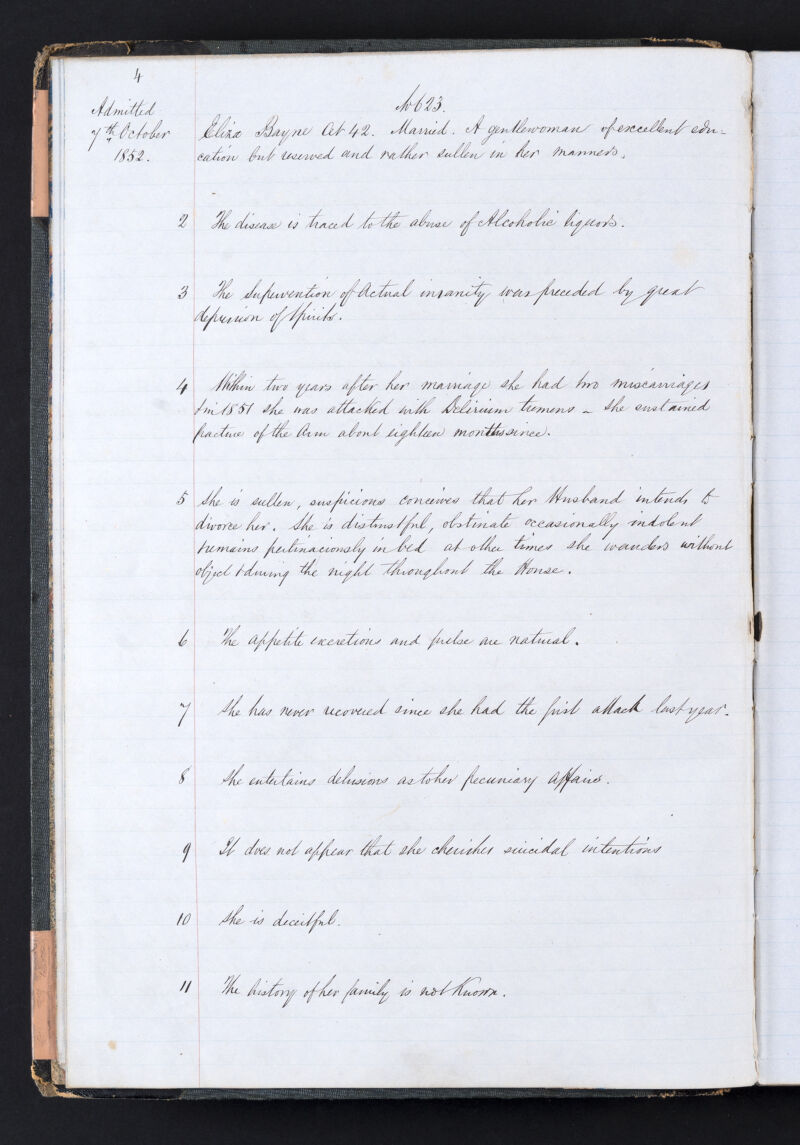 4
Admitted
7th October
1852.
No 623.
Eliza Bayne Æt 42. Married. A gentlewoman of excellent edu-
cation but reserved and rather sullen in her manners.
2 The disease is traced to the abuse of Alcoholic liquors.
3 The Supervention of Actual insanity was preceded by great
depression of Spirits.
4 Within two years after her marriage she had two miscarriages
& in 1851 she was attacked with Delirium tremens - She sustained
fracture of the Arm about eighteen months since.
5 She is sullen, suspicious conceives that her Husband intends to
divorce her. She is distrustful, obstinate occasionally indolent
& remains pertinaciously in bed at other times she wanders without
object & during the night throughout the House.
6 The appetite excretions and pulse are natural.
7 She has never recovered since she had the first attack last year.
8 She entertains delusions as to her pecuniary affairs.
9 It does not appear that she cherishes suicidal intentions
10 She is deceitful.
11 The history of her family is not Known.